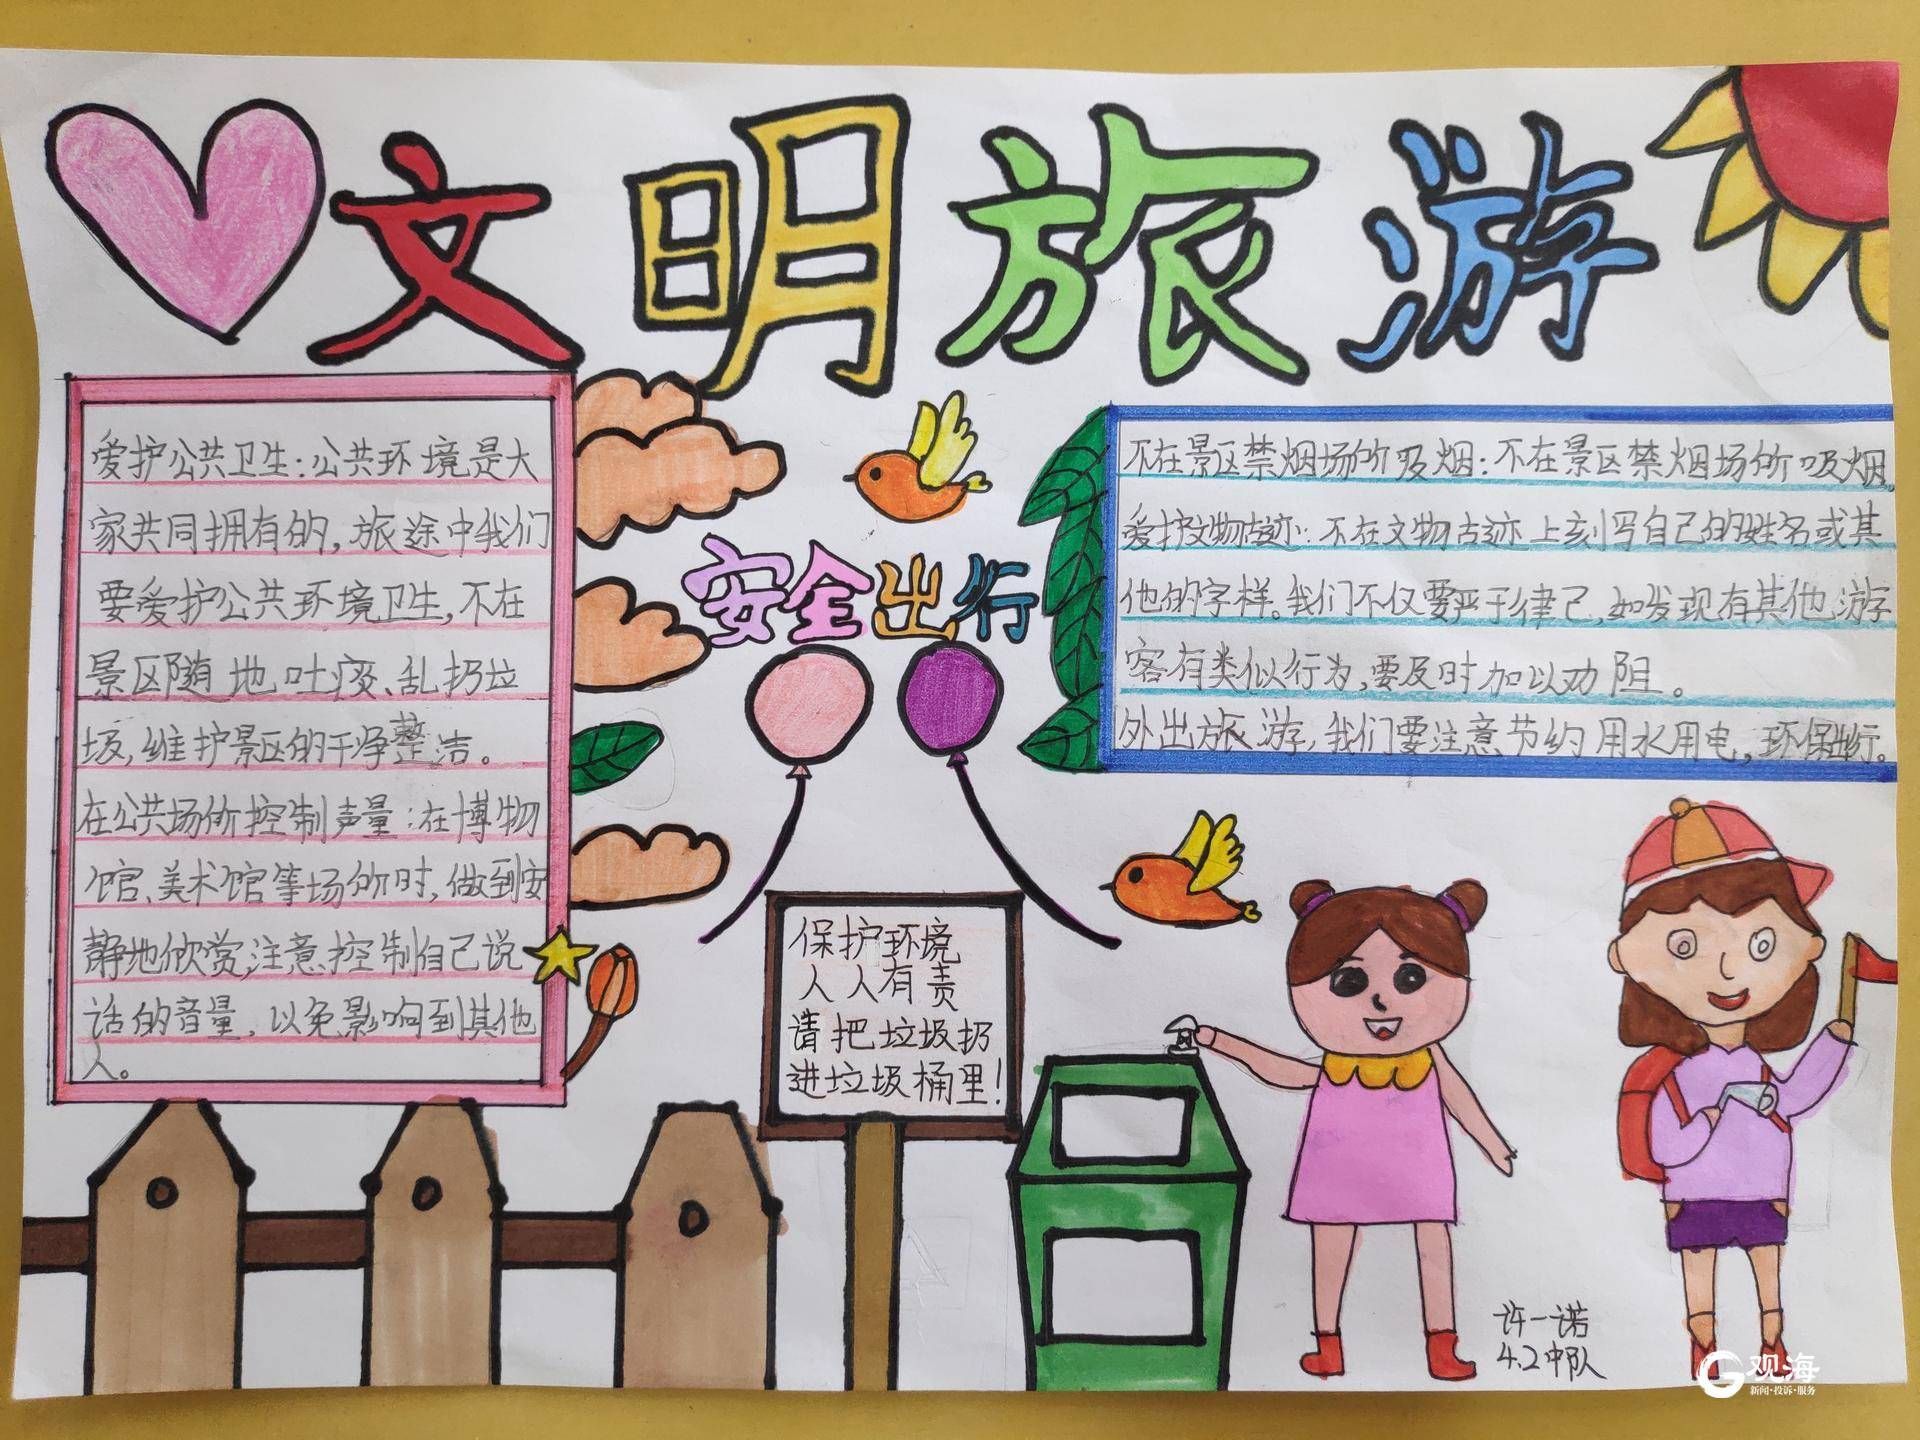 文明旅游
爱护公共卫生:公共环境是大
家共同拥有的,旅途中我们
要爱护公共环境卫生,不在
景区随地吐痰、乱扔垃
圾,维护景区的干净整洁。
在公共场所控制声量:在博物
馆、美术馆等场所时,做到安
静地欣赏,注意控制自己说
话的音量,以免影响到其他
人。
安全出行
不在景区禁烟场所吸烟:不在景区禁烟场所吸烟。
爱护文物古迹:不在文物古迹上刻写自己的姓名或其
他的字样。我们不仅要严于律己,如发现有其他游
客有类似行为,要及时加以劝阻。
外出旅游,我们要注意节约用水用电,环保出行。
保护环境
人人有责
请把垃圾扔
进垃圾桶里!
许一诺
4.2中队
观海
新闻·投诉·服务